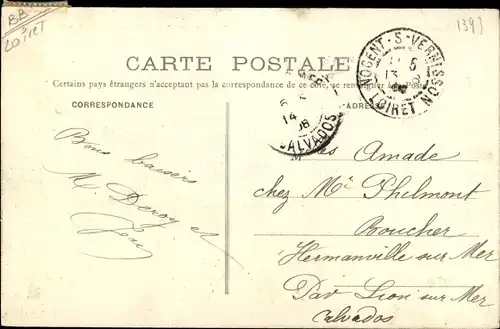 BB
LOIRET
1393
CARTE POSTALE
Certains pays étrangers n'acceptant pas la correspondance de ce côté, se renseigner à la Poste
CORRESPONDANCE
ADRES
NOGENT-S-VERNISSON
13
LOIRET
14
08
CALVADOS
Bons baisers
M. Deroy et
Jean
Amade
chez Mr Philmont
Boucher
Hermanville sur Mer
Par Lion sur Mer
Calvados